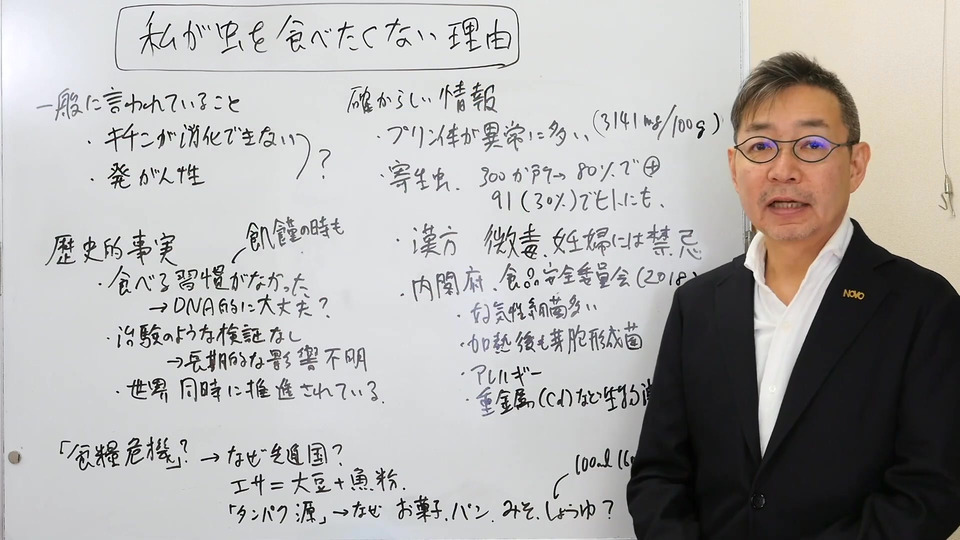 私が虫を食べたくない理由
一般に言われていること
・キチンが消化できない
・発がん性
?
歴史的事実
飢饉の時も
・食べる習慣がなかった
→DNA的に大丈夫?
・治験のような検証なし
→長期的な影響不明
・世界同時に推進されている.
確からしい情報
・プリン体が異常に多い (3141mg/100g)
・寄生虫. 300か所→80%で⊕
91(30%)でヒトにも.
・漢方 微毒.妊婦には禁忌
・内閣府、食品安全委員会(2018)
・好気性細菌多い
・加熱後も芽胞形成菌
・アレルギー
・重金属(Cd)など生物
「食糧危機」? → なぜ先進国?
エサ=大豆+魚粉.
100ml
「タンパク源」→なぜ お菓子.パン.みそ.しょうゆ?
NOVO